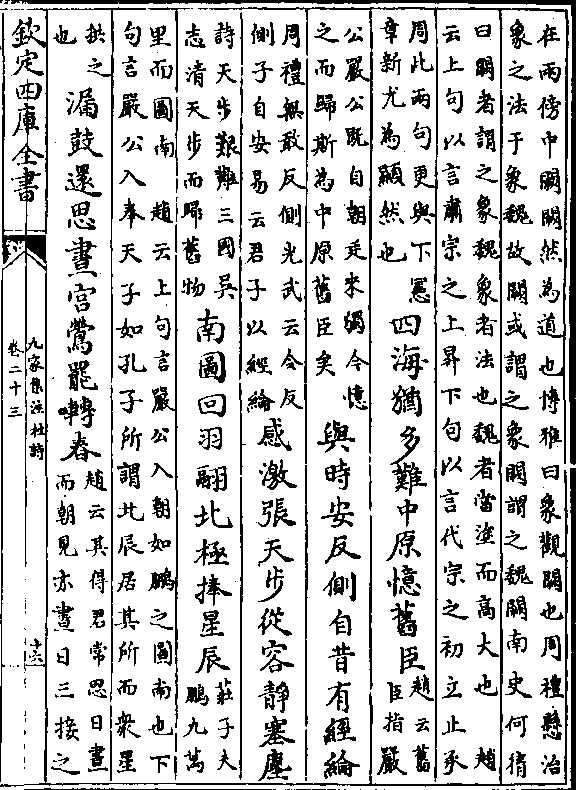 在兩傍中闕闕然為道也博雅曰象觀闕也周禮懸治
象之法于象魏故闕或謂之象闕謂之魏闕南史何循
曰闕者謂之象魏象者法也魏者當塗而高大也 趙
云上句以言肅宗之上昇下句以言代宗之初立止承
周此兩句更與下憲
章新尤為顯然也
四海猶多難中原憶舊臣
趙云舊
臣指嚴
公嚴公既自朝廷來獨今憶
之而歸斯為中原舊臣矣
與時安反側自昔有經綸
周禮無敢反側光武云令反
側子自安易云君子以經綸
感激張天步從容靜塞塵
詩天步艱難三國吳
志清天步而歸舊物
南圖回羽翮北極捧星辰
莊子夫
鵬九萬
里而圖南 趙云上句言嚴公入朝如鵬之圖南也下
句言嚴公入奉天子如孔子所謂北辰居其所而衆星
拱之
也
漏鼓還思晝宮鶯罷囀春
趙云其得君常思日晝
而朝見亦晝日三接之
欽定四庫全書
九家集注杜詩
卷二十三
十六